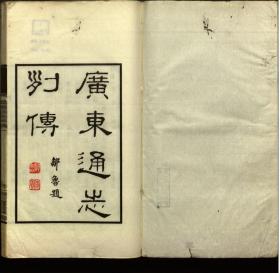 廣東通志
列傳
鄒魯題